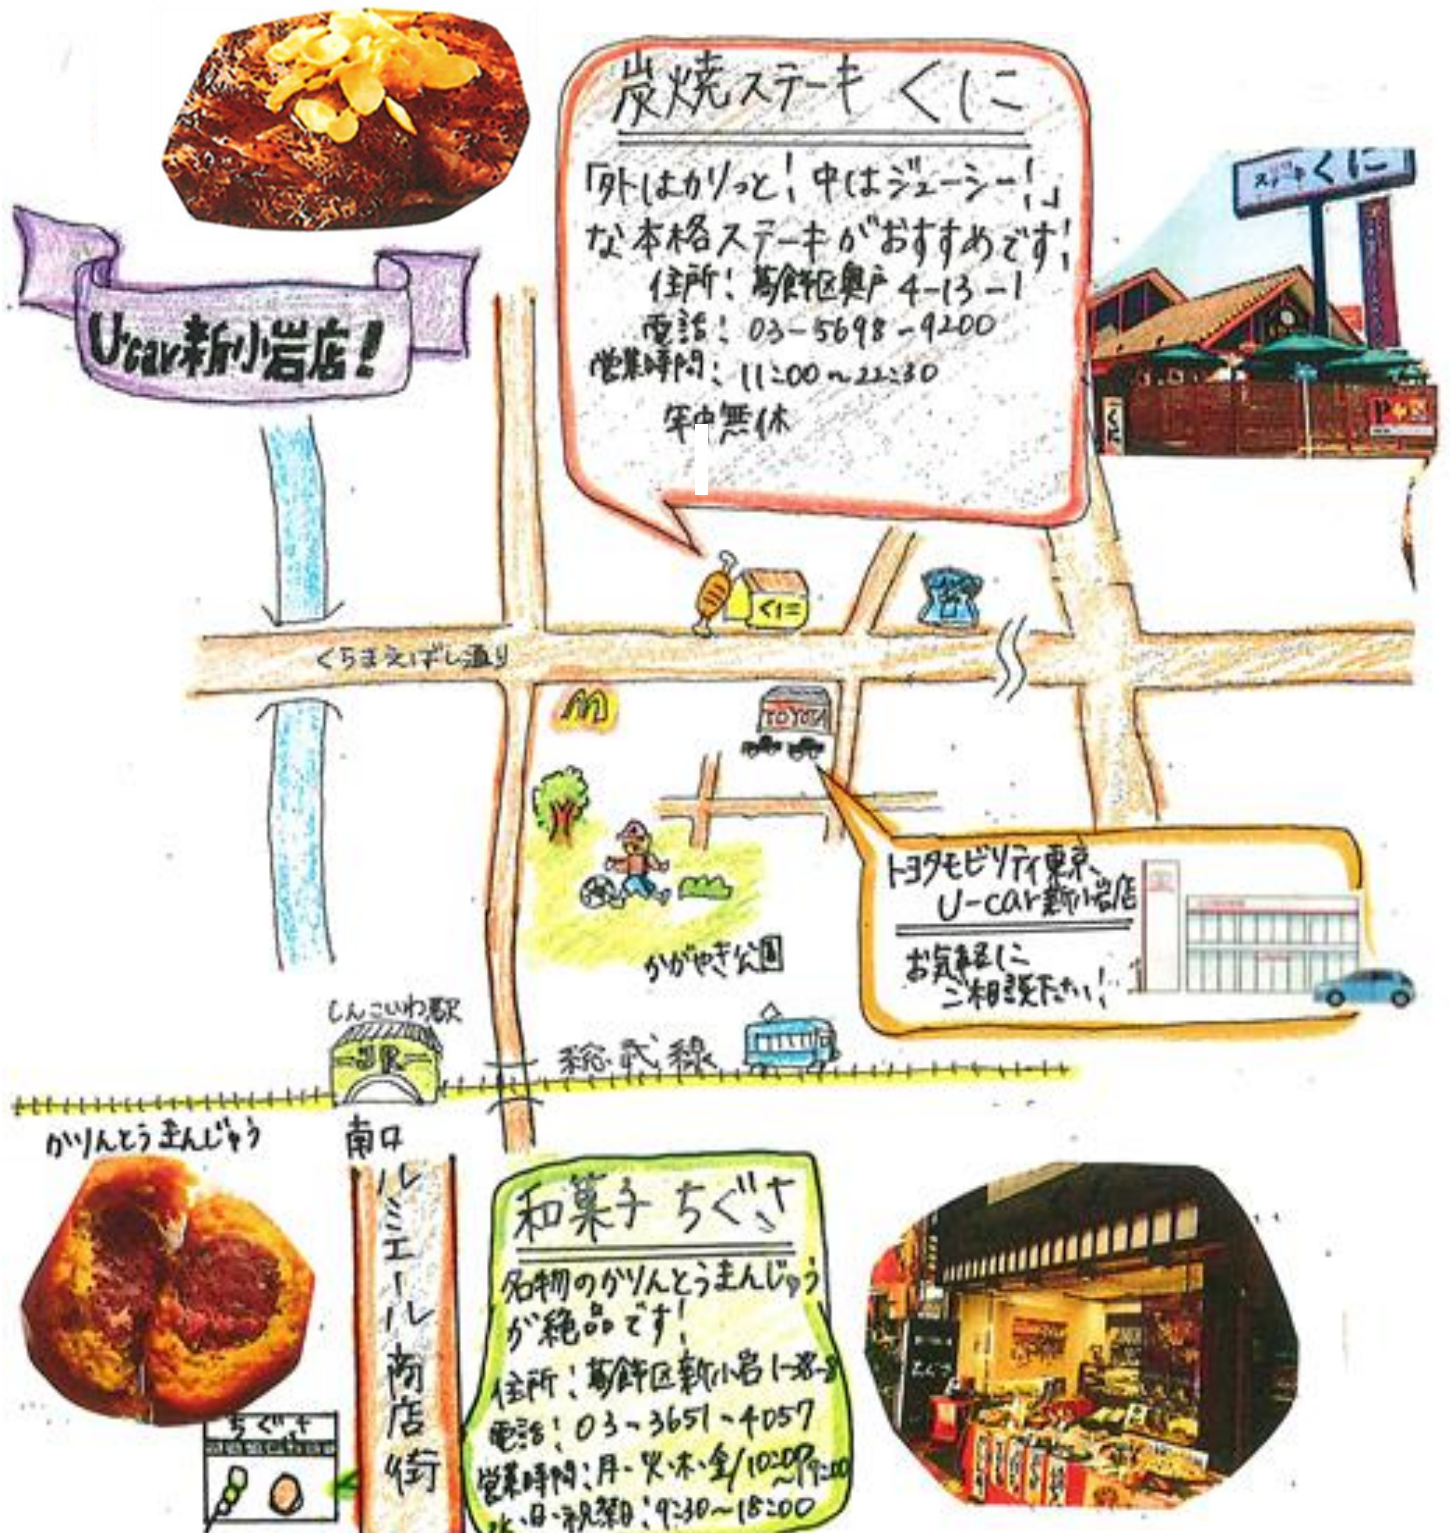 炭焼ステーキ くに
「外はかりっと!中はジューシー!」
な本格ステーキがおすすめです!
住所:葛飾区奥戸4-13-1
電話:03-5698-9200
営業時間:11:00~22:30
年中無休
くに
U-car新小岩店!
くに
くらまえばし通り
TOYOTA
トヨタモビリティ東京
U-car新小岩店
お気軽に
ご相談下さい!
かがやき公園
しんこいわ駅
JR
総武線
かりんとうまんじゅう
南口
ルミエール商店街
和菓子 ちぐさ
名物のかりんとうまんじゅう
が絶品です!
住所:葛飾区新小岩1-38-8
電話:03-3651-4057
営業時間:月・火・木・金/10:00~19:00
水・日・祝祭日:9:30~18:00
ちぐさ